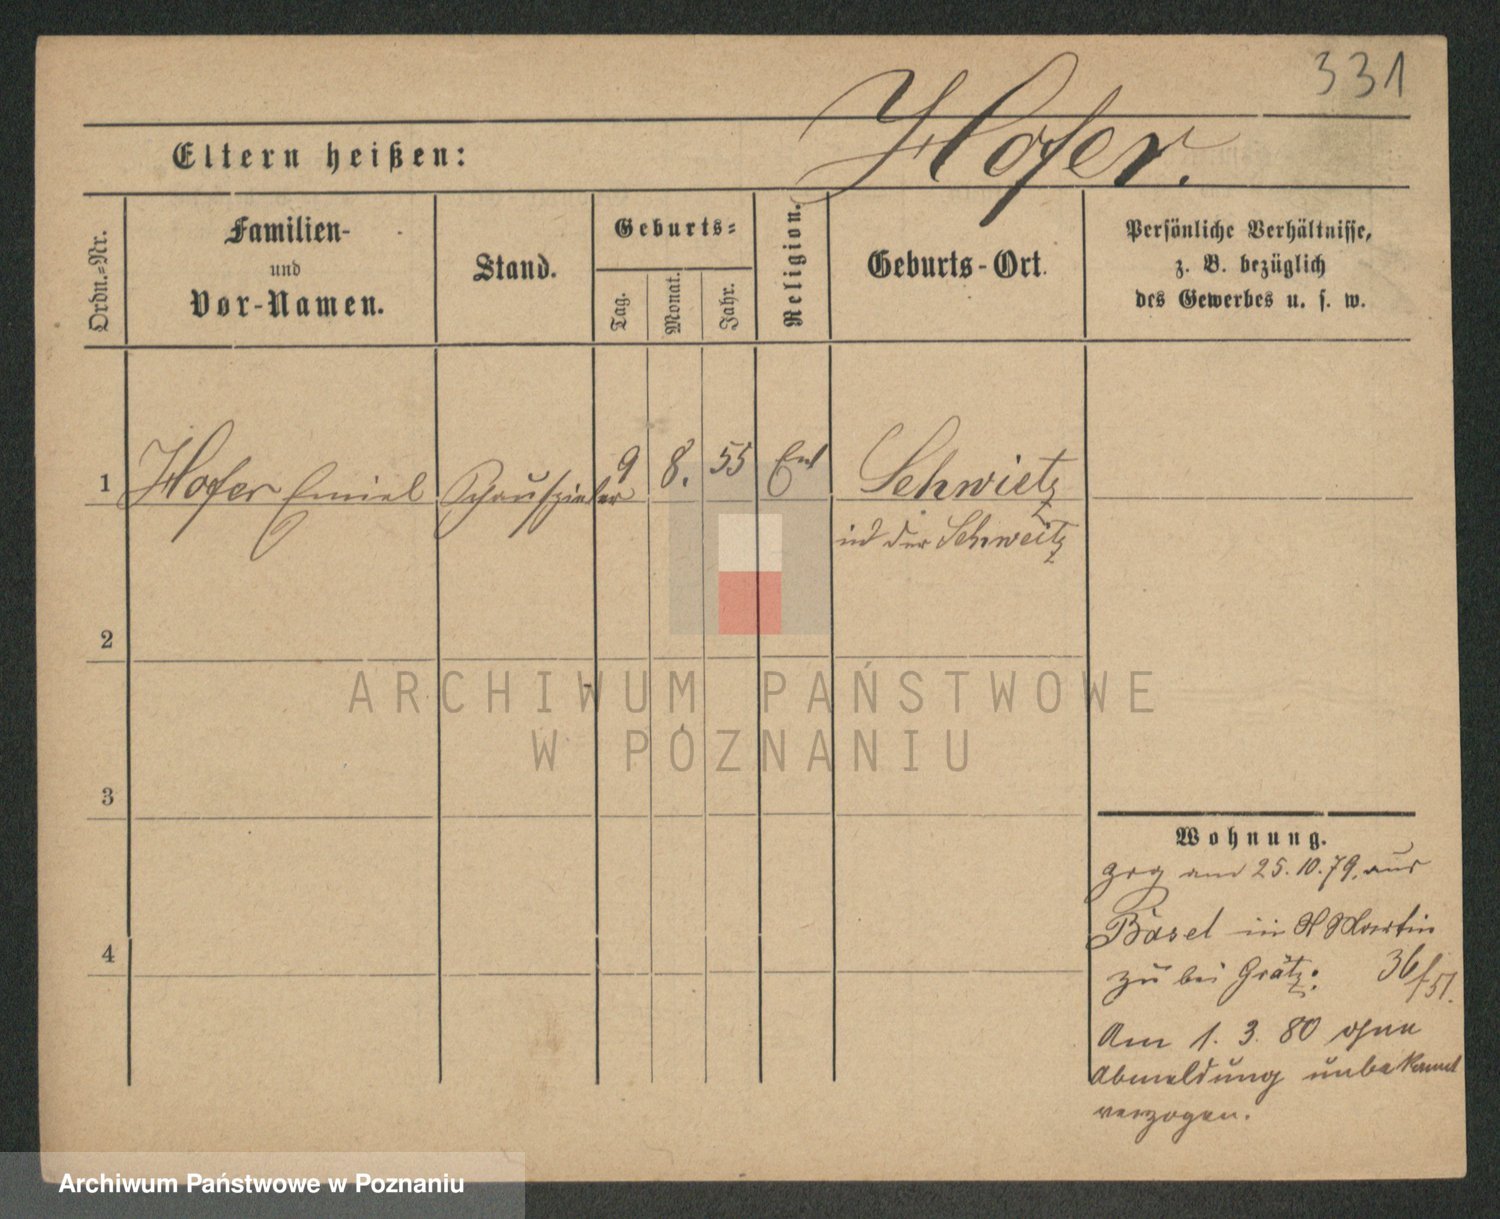 331
Hofer.
Eltern heißen:
Ordn.=Nr.
Familien-
und
Vor-Namen.
Stand.
Geburts=
Tag.
Monat.
Jahr.
Religion.
Geburts-Ort.
Persönliche Verhältnisse,
z. B. bezüglich
des Gewerbes u. s. w.
1 Hofer Emiel Schauspieler 9 8. 55 Schwietz
in der Schweitz
2
ARCHIWUM PAŃSTWOWE
W POZNANIU
3
Wohnung.
am 25.10.79. aus
Basel in St Martin
4
zu bei Grätz. 36/51.
Am 1. 3. 80 ohne
Abmeldung unbekannt
verzogen.
Archiwum Państwowe w Poznaniu